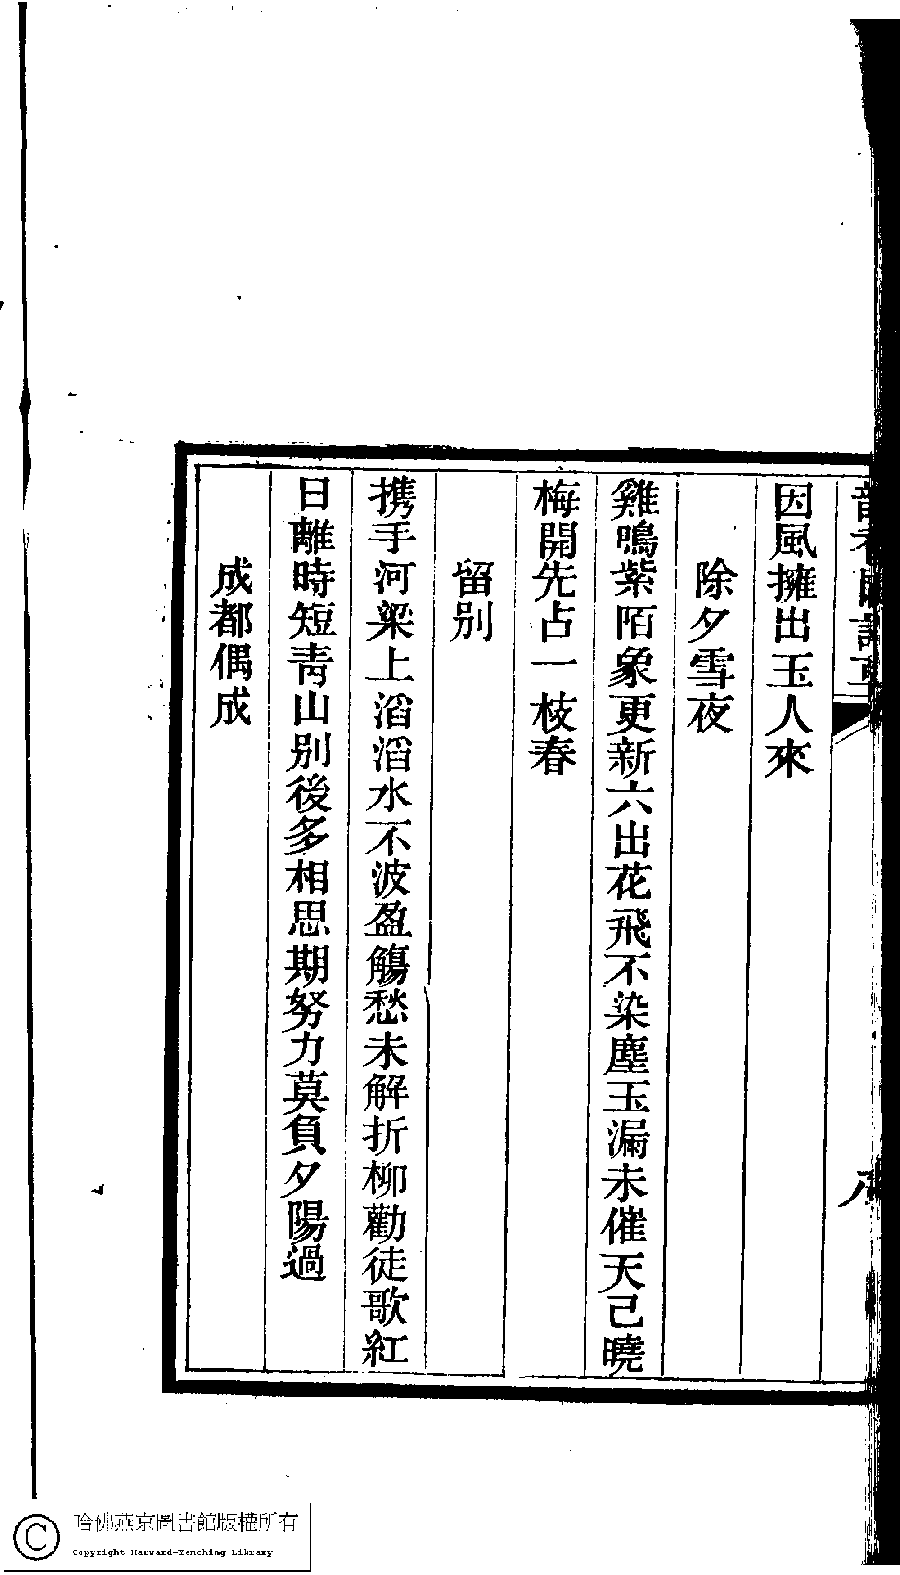 因風擁出玉人來
除夕雪夜
雞鳴紫陌象更新六出花飛不染塵玉漏未催天己曉
梅開先占一枝春
留别
携手河梁上滔滔水不波盈觴愁未解折柳勸徒歌紅
日離時短靑山别後多相思期努力莫負夕陽過
成都偶成
哈佛燕京圖書館版權所有
Copyright Harvard-Yenching Library